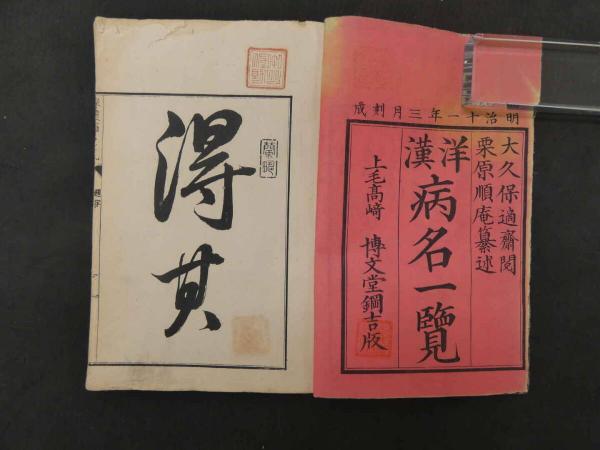 明治十一年三月刻成
大久保適齋閲
栗原順庵纂述
洋漢病名一覽
上毛高﨑 博文堂鋼吉版
得其